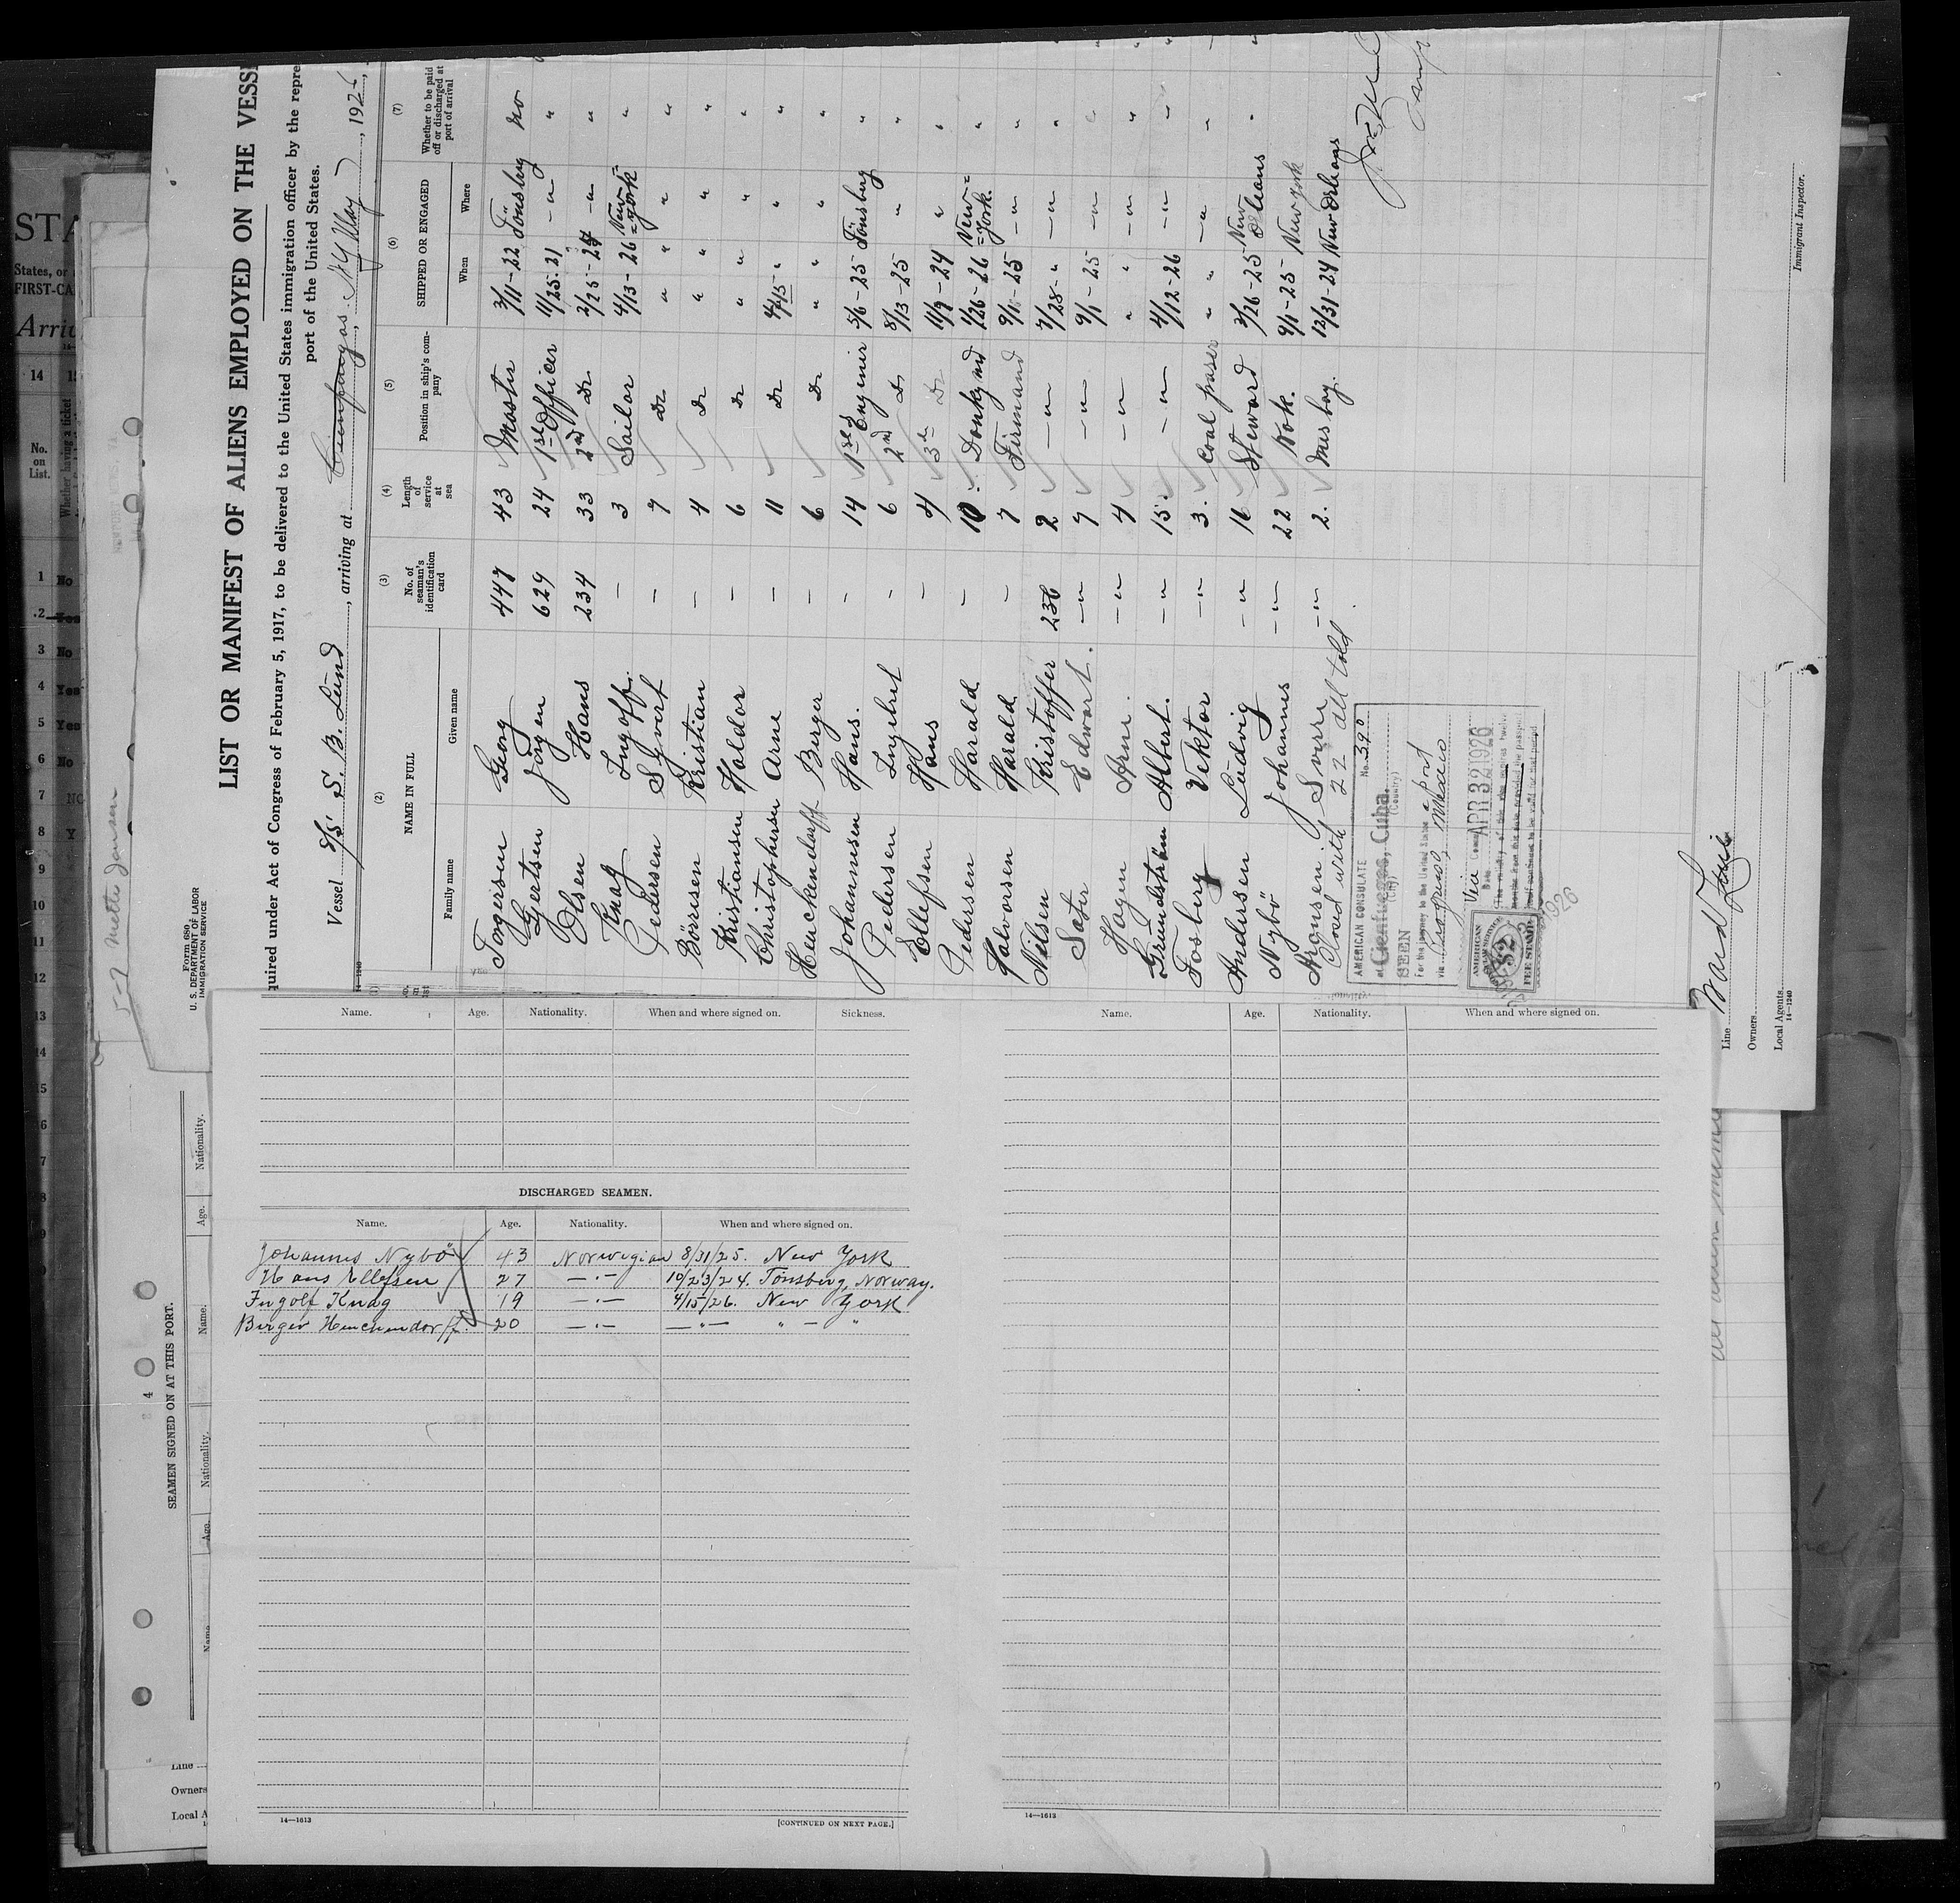 LIST OR MANIFEST OF ALIENS EMPLOYED ON THE VESS
quired under Act of Congress of February 5, 1917, to be delivered to the United States immigration officer by the repre
port of the United States.
Vessel S/S S. B. Lund, arriving at Cienfuegos, N.Y. May, 192
(2) (3) (4) (5) (6) (7)
NAME IN FULL
Family name Given name
No. of seaman's identification card
Length of service at sea
Position in ship's company
SHIPPED OR ENGAGED
When Where
Whether to be paid off or discharged at port of arrival
Torgersen Georg 447 43 Master 3/11-22 Tönsberg no
Gjertsen Jörgen 629 24 1st Officer 11/25-21 -"- "
Olsen Hans 234 33 2nd Do 2/25-24 -"- "
Knag Ingolf - 3 Sailor 4/13-26 New-York "
Pedersen Syvert - 7 Do " " "
Börresen Kristian - 4 Do " " "
Kristiansen Haldor - 6 Do " " "
Christophersen Arne - 11 Do 4/15 " "
Henchendorff Berger - 6 Do " " "
Johannsen Hans. - 14 1st Enginier 5/6-25 Tönsberg "
Pedersen Ingebret - 6 2nd Do 8/13-25 " "
Ellefsen Hans - 4 3rd Do 11/9-24 " "
Pedersen Harald - 10 Donkeymd 1/26-26 New-York. "
Halvorsen Harald - 7 Firmand 9/1-25 -"- "
Nilsen Kristoffer 236 2 -"- 7/28-" -"- "
Sater Edwart. -"- 7 -"- 9/1-25 -"- "
Hagen Arne. -"- 4 -"- " -"- "
Grundström Albert. -"- 15. -"- 4/12-26 -"- "
Fosberg Vektor -"- 3. Coal praser " -"- "
Andersen Ludvig -"- 16 Steward 3/26-25 New-Orleans "
Nybö Johannes -"- 22 Kok. 9/1-25 New york
Aronsen Sverre -"- 2. Mesboy. 12/31-24 New Orleans
Closed with 22 all told.
AMERICAN CONSULATE No. 390
at Cienfuegos, Cuba.
(City) (Country)
SEEN
For the journey to the United States a port
via Progreso, Mexico
APR 3 1926
AMERICAN
$2
FEE STAMP
Line Ward Line
Owners
Local Agents
14—1240
Immigrant Inspector.
Form 680
U. S. DEPARTMENT OF LABOR
IMMIGRATION SERVICE
5-7 Mette Jansen
STA
States, or
FIRST-CA
Arri
14
No. on List.
Whether having a ticket
1 No
2 Yes
3 No
4 Yes
5 Yes
6 No
7 NO
8 Y
9
10
11
12
13
14
15
16
17
SEAMEN SIGNED ON AT THIS PORT.
Name. Age. Nationality. Name. Age. Nationality.
4
Line
Owners
Local A
Name. Age. Nationality. When and where signed on. Sickness.
DISCHARGED SEAMEN.
Name. Age. Nationality. When and where signed on.
Johannes Nybö 43 Norwegian 8/31/25. New York
Hans Ellefsen 27 —"— 10/23/24. Tönsberg, Norway.
Ingolf Knag 19 —"— 4/15/26. New York
Birger Henchendorff. 20 —"— —"— " — "
14—1613 [CONTINUED ON NEXT PAGE.]
Name. Age. Nationality. When and where signed on.
14—1613